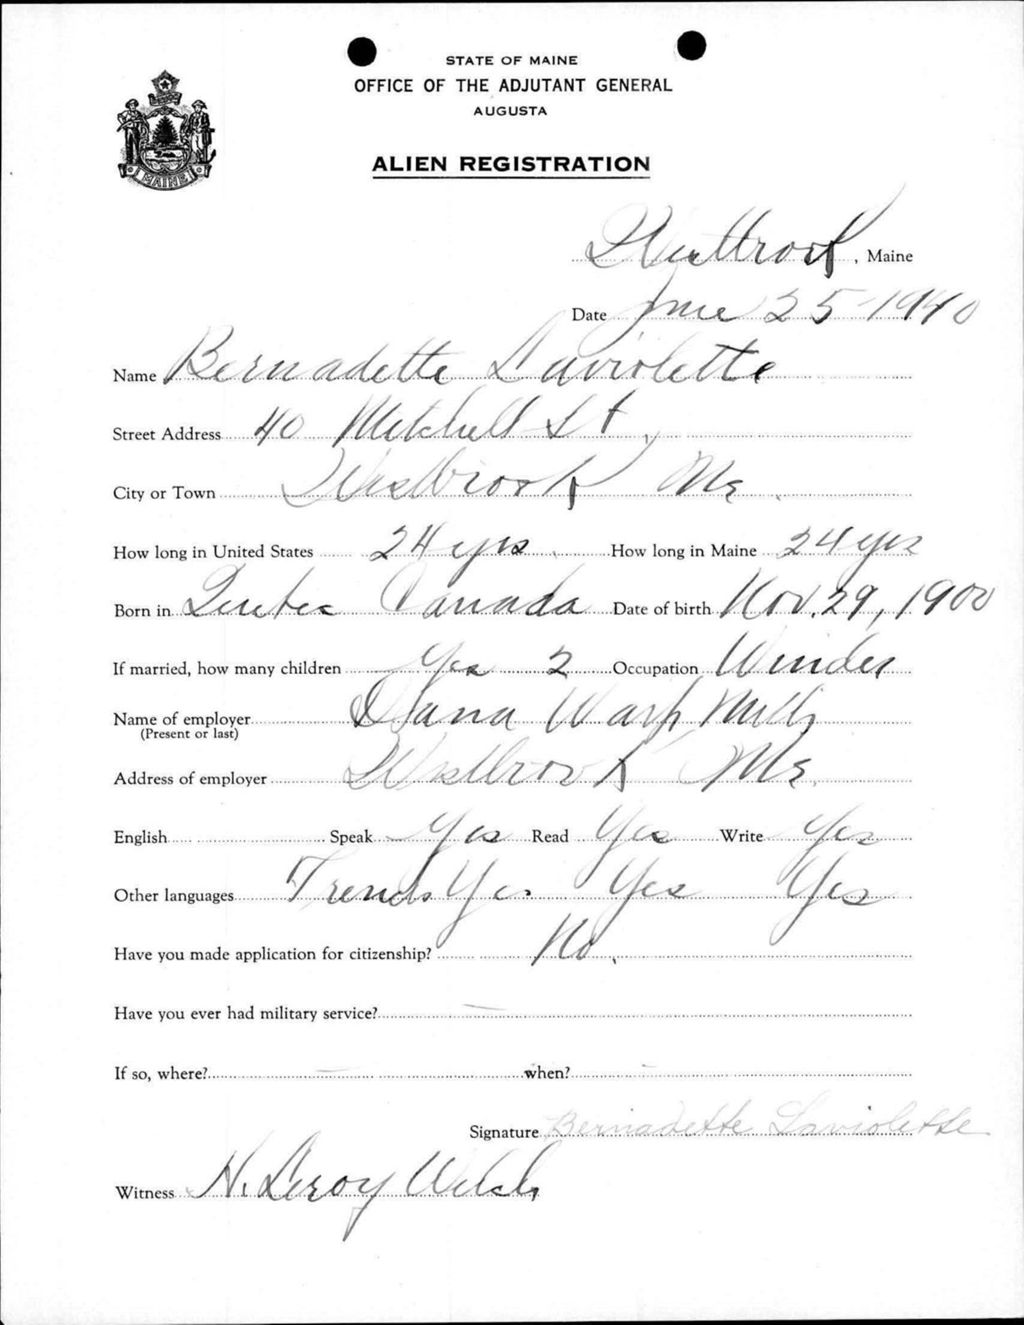 STATE OF MAINE
OFFICE OF THE ADJUTANT GENERAL
AUGUSTA
ALIEN REGISTRATION
MAINE
Westbrook, Maine
Date June 25-1940
Name Bernadette Laviolette
Street Address 40 Mitchell St,
City or Town Westbrook Me.
How long in United States 24 yrs. How long in Maine 24 yrs
Born in Quebec Canada Date of birth Nov. 29, 1900
If married, how many children Yes 2 Occupation Winder
Name of employer Dana Warp Mills
(Present or last)
Address of employer Westbrook Me.
English Speak Yes Read Yes Write Yes
Other languages French Yes Yes Yes
Have you made application for citizenship? No.
Have you ever had military service? —
If so, where? — when? —
Signature Bernadette Laviolette
Witness H. Leroy Welch